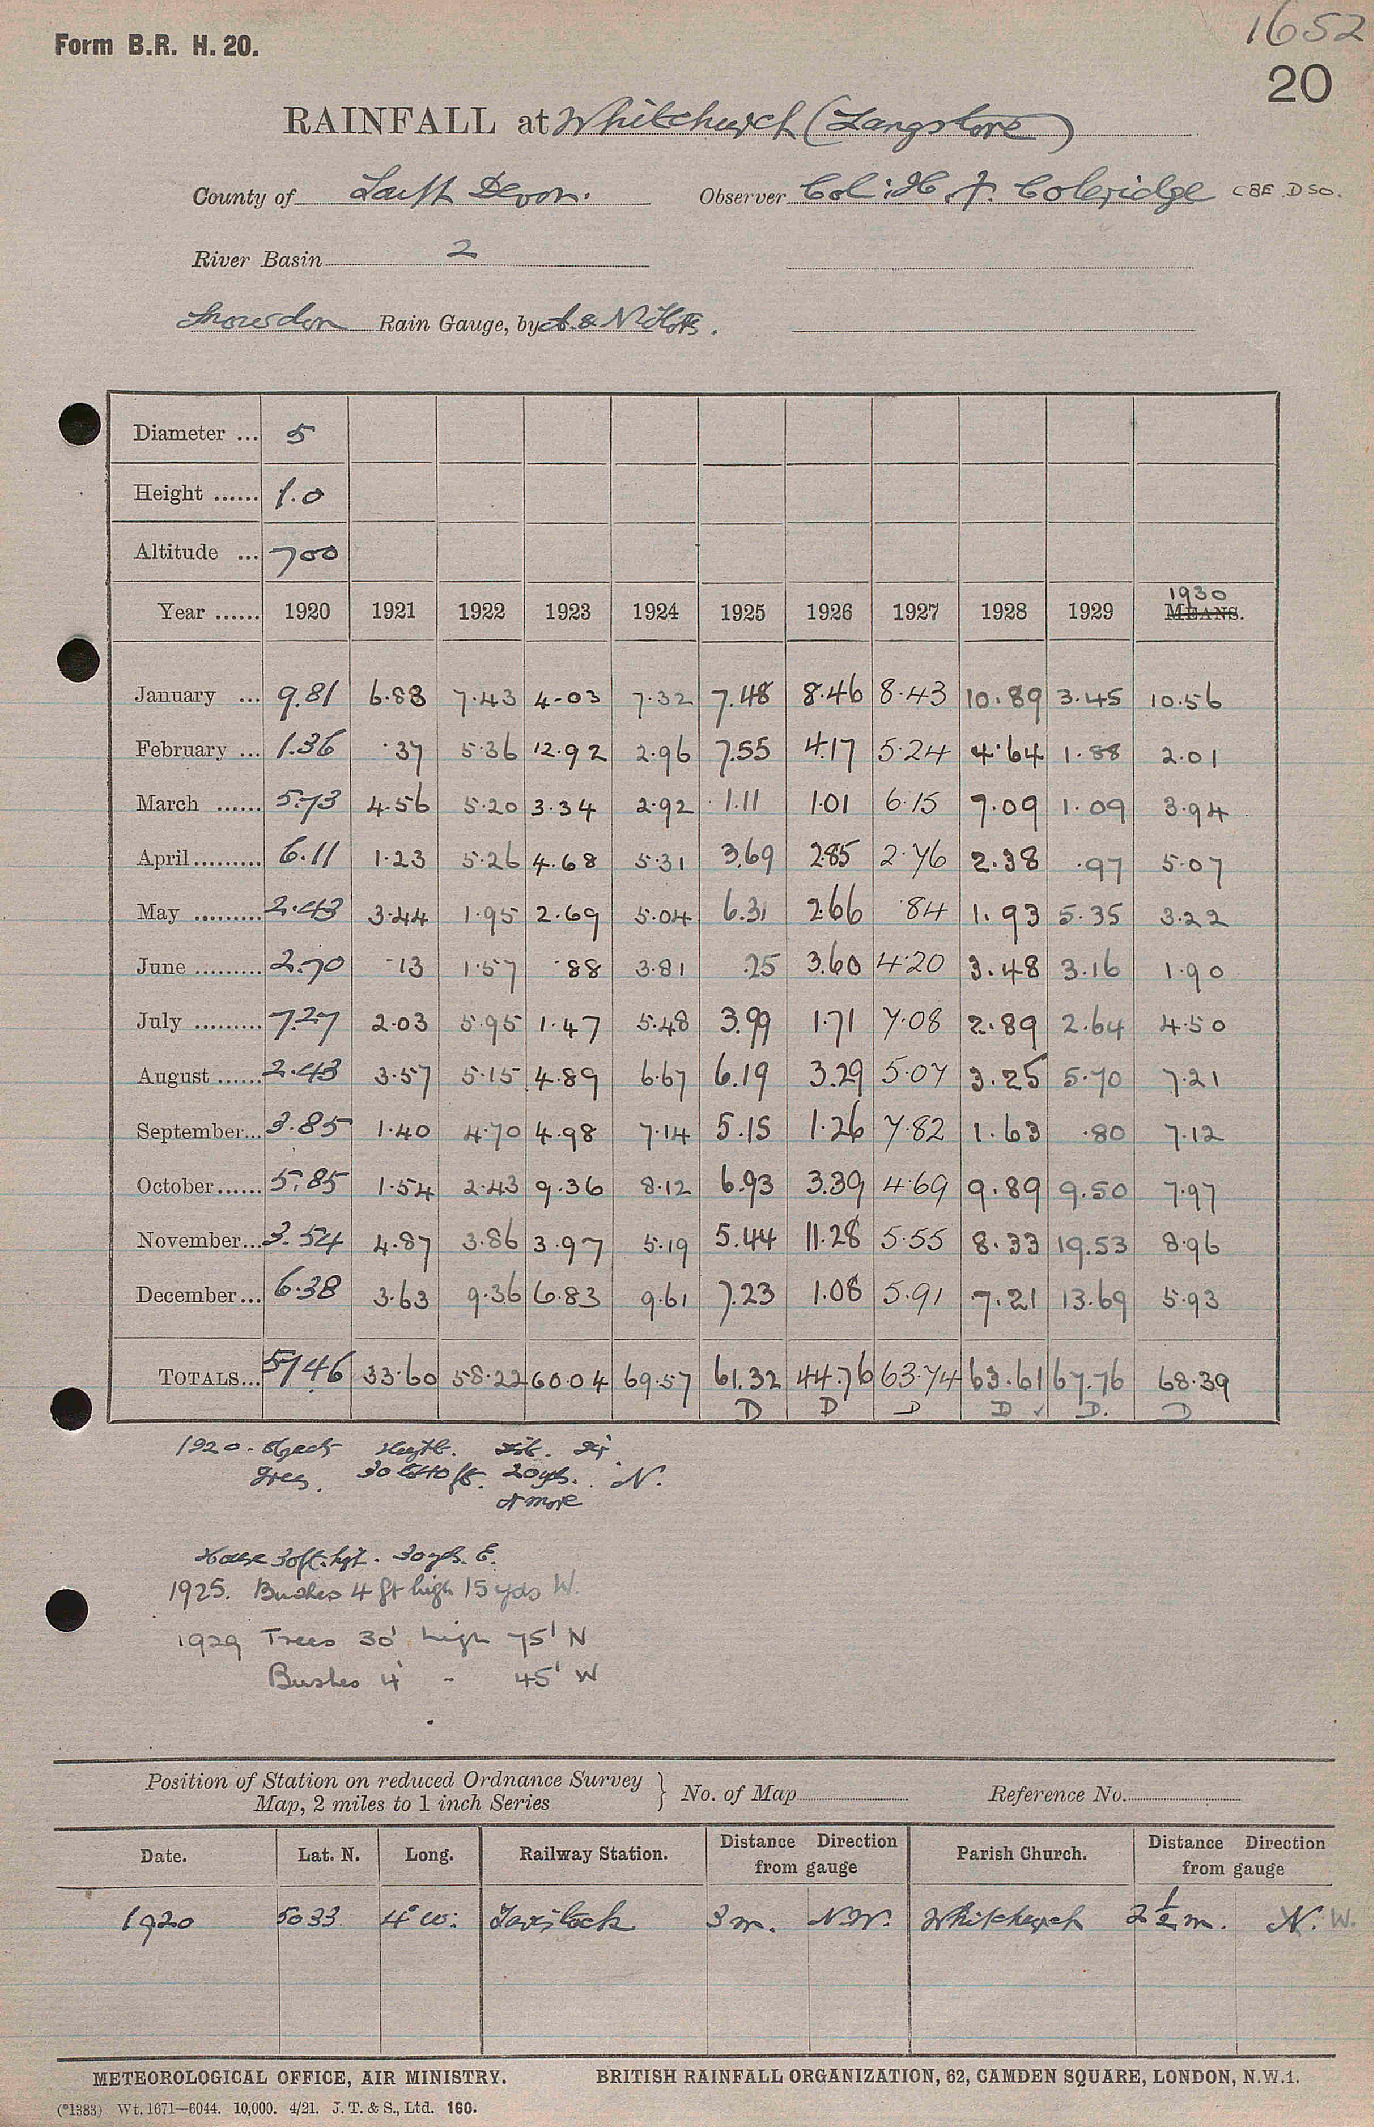 1652
Form B.R. H. 20.
20
RAINFALL at Whitchurch (Langstone)
County of South Devon. Observer Col: H. F. Coleridge CBE DSO.
River Basin 2
Snowdon Rain Gauge, by A & N
Diameter ... 5
Height ...... 1.0
Altitude ... 700
1930
Year ...... 1920 1921 1922 1923 1924 1925 1926 1927 1928 1929 MEANS.
January ... 9.81 6.83 7.43 4.03 7.32 7.48 8.46 8.43 10.89 3.45 10.56
February ... 1.36 .37 5.36 12.92 2.96 7.55 4.17 5.24 4.64 1.88 2.01
March ...... 5.73 4.56 5.20 3.34 2.92 1.11 1.01 6.15 7.09 1.09 3.94
April ......... 6.11 1.23 5.26 4.68 5.31 3.69 2.85 2.76 2.38 .97 5.07
May ......... 2.43 3.44 1.95 2.69 5.04 6.31 2.66 .84 1.93 5.35 3.22
June ......... 2.70 .13 1.57 .88 3.81 .25 3.60 4.20 3.48 3.16 1.90
July ......... 7.27 2.03 5.95 1.47 5.48 3.99 1.71 7.08 2.89 2.64 4.50
August ...... 2.43 3.57 5.15 4.89 6.67 6.19 3.29 5.07 3.25 5.70 7.21
September... 3.85 1.40 4.70 4.98 7.14 5.15 1.26 7.82 1.63 .80 7.12
October ...... 5.85 1.54 2.43 9.36 8.12 6.93 3.39 4.69 9.89 9.50 7.97
November... 3.54 4.87 3.86 3.97 5.19 5.44 11.28 5.55 8.33 19.53 8.96
December ... 6.38 3.63 9.36 6.83 9.61 7.23 1.08 5.91 7.21 13.69 5.93
TOTALS... 57.46 33.60 58.22 60.04 69.57 61.32 44.76 63.74 63.61 67.76 68.39
D D D D ✓ D. D
1920. Object Height. Dist. Dir
Trees. 30 to 40 ft. 20 yds. N.
& more
House 30 ft. hgt. 30 yds. E.
1925. Bushes 4 ft high 15 yds W.
1929 Trees 30' high 75' N
Bushes 4' - 45' W
Position of Station on reduced Ordnance Survey
Map, 2 miles to 1 inch Series } No. of Map Reference No.
Date. Lat. N. Long. Railway Station. Distance Direction from gauge Parish Church. Distance Direction from gauge
1920 50 33 4° W. Tavistock 3 m. N.W. Whitchurch 2 1/2 m. N. W.
METEOROLOGICAL OFFICE, AIR MINISTRY. BRITISH RAINFALL ORGANIZATION, 62, CAMDEN SQUARE, LONDON, N.W.1.
(*1383) Wt. 1671—6044. 10,000. 4/21. J. T. & S., Ltd. 160.